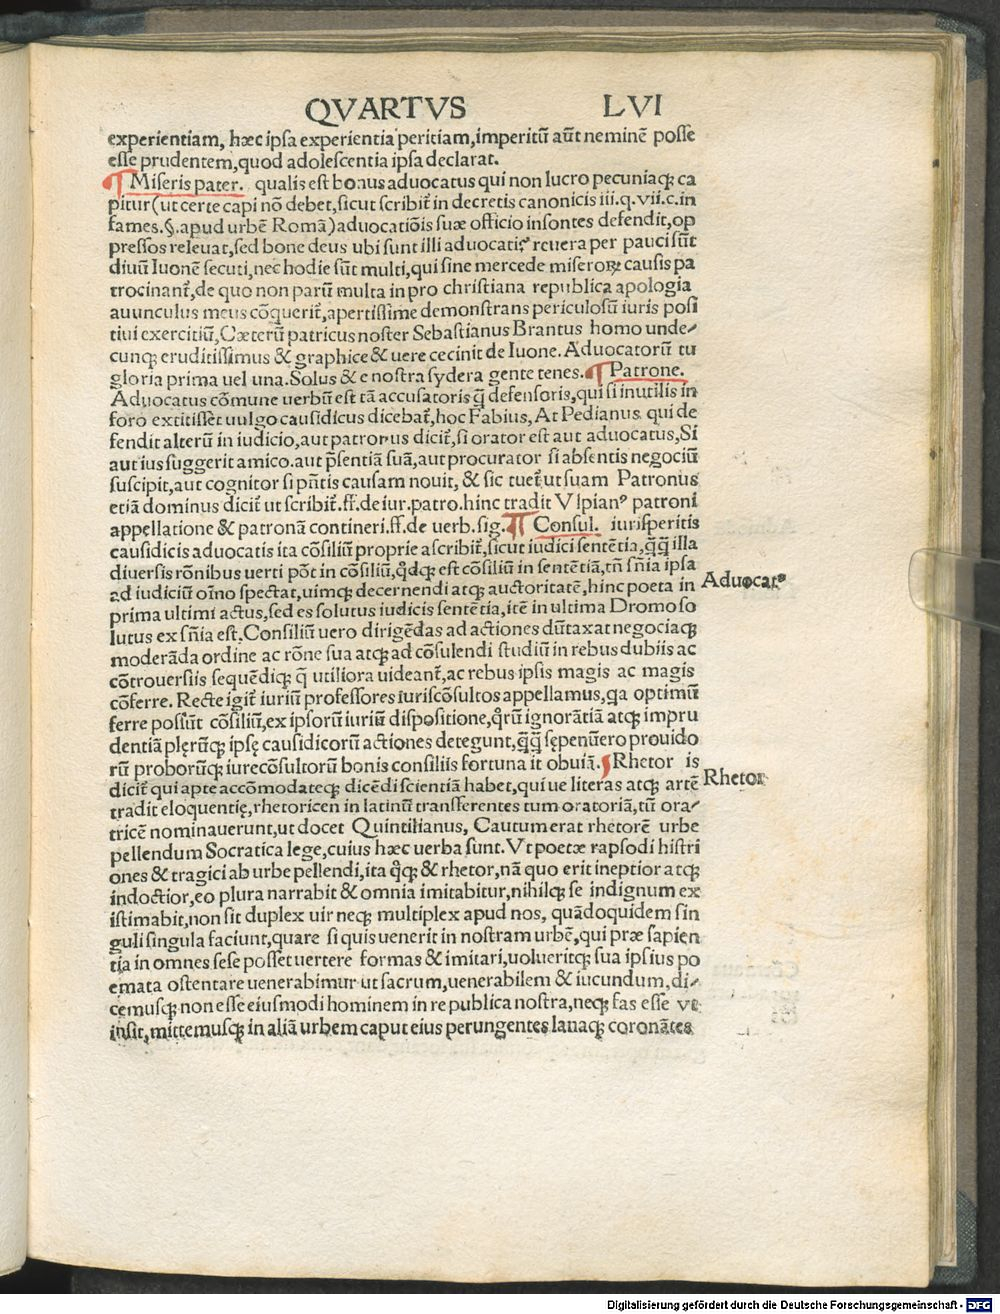 QVARTVS LVI
experientiam, hæc ipſa experientia peritiam, imperitū aūt neminē poſſe
eſſe prudentem, quod adoleſcentia ipſa declarat.
¶ Miſeris pater. qualis eſt bonus aduocatus qui non lucro pecuniaqꝫ ca
pitur (ut certe capi nō debet, ſicut ſcribit᷑ in decretis canonicis iii.q.vii.c.in
fames.§.apud urbē Romā) aduocatiōis ſuæ officio inſontes defendit, op
preſſos releuat, ſed bone deus ubi ſunt illi aduocati? reuera per pauci ſūt
diuū Iuonē ſecuti, nec hodie ſūt multi, qui ſine mercede miſeroꝝ cauſis pa
trocinant᷑, de quo non parū multa in pro chriſtiana republica apologia
auunculus meus cōquerit᷑, apertiſſime demonſtrans periculoſum iuris poſi
tiui exercitiū, Cæterū patricus noſter Sebaſtianus Brantus homo unde-
cunqꝫ eruditiſſimus & graphice & uere cecinit de Iuone. Aduocatorū tu
gloria prima uel una. Solus & e noſtra ſydera gente tenes. ¶ Patrone.
Aduocatus cōmune uerbū eſt tā accuſatoris q̄ defenſoris, qui ſi inutilis in
foro extitiſſet uulgo cauſidicus dicebat᷑, hoc Fabius, At Pedianus qui de
fendit alterū in iudicio, aut patronus dicit᷑, ſi orator eſt aut aduocatus, Si
aut ius ſuggerit amico. aut p̄ſentiā ſuā, aut procurator ſi abſentis negociū
ſuſcipit, aut cognitor ſi p̄ntis cauſam nouit, & ſic tuet᷑ ut ſuam Patronus
etiā dominus dicit᷑ ut ſcribit᷑. ff. de iur. patro. hinc tradit Vlpianꝰ patroni
appellatione & patronā contineri. ff. de uerb. ſig. ¶ Conſul. iuriſperitis
cauſidicis aduocatis ita cōſiliū proprie aſcribit᷑, ſicut iudici ſentētia, q̄q̄ illa
diuerſis rōnibus uerti pōt in cōſiliū, q̊dqꝫ eſt cōſiliū in ſentētiā, tn̄ ſn̄ia ipſa
ad iudiciū oīno ſpectat, uimqꝫ decernendi atqꝫ auctoritatē, hinc poeta in
Aduocatꝰ
prima ultimi actus, ſed es ſolutus iudicis ſentētia, itē in ultima Dromo ſo
lutus ex ſn̄ia eſt, Conſiliū uero dirigēdas ad actiones dūtaxat negociaqꝫ
moderāda ordine ac rōne ſua atqꝫ ad cōſulendi ſtudiū in rebus dubiis ac
cōtrouerſiis ſequēdiqꝫ q̄ utiliora uideant᷑, ac rebus ipſis magis ac magis
cōferre. Recte igit᷑ iuriū profeſſores iuriſcōſultos appellamus, qa optimū
ferre poſſūt cōſiliū, ex ipſorū iuriū diſpoſitione, q̊rū ignorātiā atqꝫ impru
dentiā plęrūqꝫ ipſę cauſidicorū actiones detegunt, q̄q̄ ſępenūero prouido
rū proborūqꝫ iurecōſultorū bonis conſiliis fortuna it obuiā. ¶ Rhetor is
dicit᷑ qui apte accōmodateqꝫ dicēdi ſcientiā habet, qui ue literas atqꝫ artē
Rhetor
tradit eloquentię, rhetoricen in latinū transferentes tum oratoriā, tū ora-
tricē nominauerunt, ut docet Quintilianus, Cautum erat rhetorē urbe
pellendum Socratica lege, cuius hæc uerba ſunt. Vt poetæ rapſodi hiſtri
ones & tragici ab urbe pellendi, ita q̊qꝫ & rhetor, nā quo erit ineptior atqꝫ
indoctior, eo plura narrabit & omnia imitabitur, nihilqꝫ ſe indignum ex
iſtimabit, non ſit duplex uir neqꝫ multiplex apud nos, quādoquidem ſin
guli ſingula faciunt, quare ſi quis uenerit in noſtram urbē, qui præ ſapien
tia in omnes ſeſe poſſet uertere formas & imitari, uolueritqꝫ ſua ipſius po
emata oſtentare uenerabimur ut ſacrum, uenerabilem & iucundum, di-
cemuſqꝫ non eſſe eiuſmodi hominem in re publica noſtra, neqꝫ fas eſſe ut
inſit, mittemuſqꝫ in aliā urbem caput eius perungentes lanaqꝫ coronātes
Digitalisierung gefördert durch die Deutsche Forschungsgemeinschaft - DFG